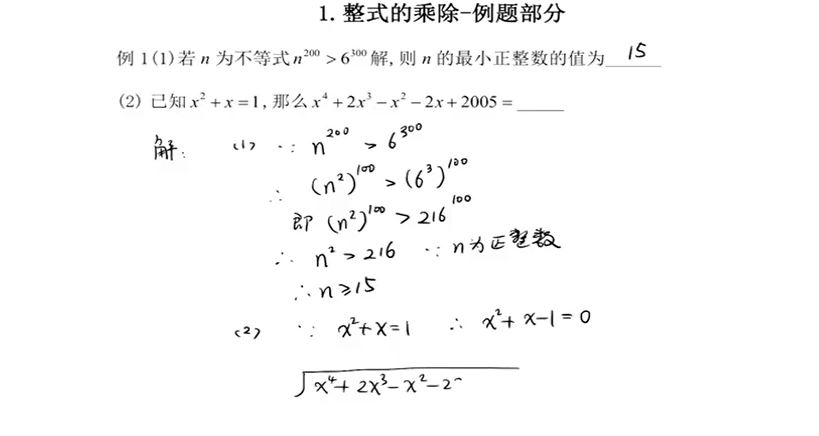 1. 整式的乘除-例题部分
例 1 (1) 若 n 为不等式 n²⁰⁰ > 6³⁰⁰ 解, 则 n 的最小正整数的值为 15
(2) 已知 x² + x = 1, 那么 x⁴ + 2x³ − x² − 2x + 2005 = ______
解: (1) ∵ n²⁰⁰ > 6³⁰⁰
∴ (n²)¹⁰⁰ > (6³)¹⁰⁰
即 (n²)¹⁰⁰ > 216¹⁰⁰
∴ n² > 216 ∵ n为正整数
∴ n ≥ 15
(2) ∵ x² + x = 1 ∴ x² + x − 1 = 0
x⁴ + 2x³ − x² − 2